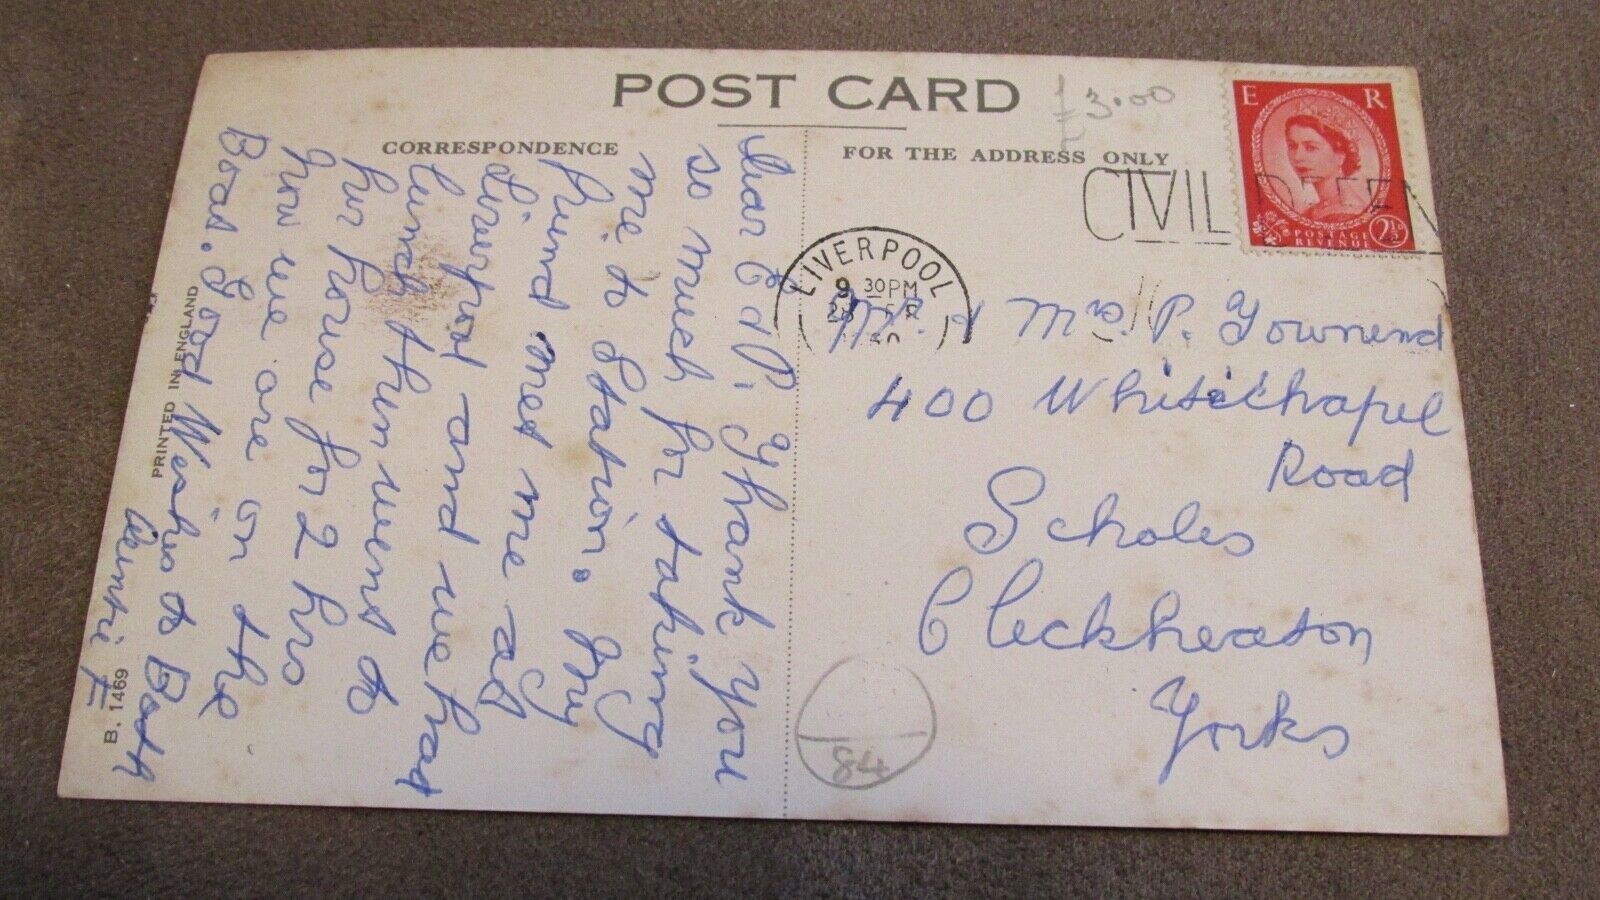 POST CARD
£3.00
CORRESPONDENCE
FOR THE ADDRESS ONLY
E R
POSTAGE
REVENUE
2½D
CIVIL DEFEN
LIVERPOOL
9 30PM
28
Dear E & P, Thank You
so much for taking
me to Station. My
friend met me at
Liverpool and we had
lunch then went to
her house for 2 hrs
Now we are on the
Boat. Good Wishes to Both
Auntie F
Mr & Mrs. P. Townend
400 Whitechapel
Road
Scholes
Cleckheaton
Yorks
84
PRINTED IN ENGLAND
B. 1469